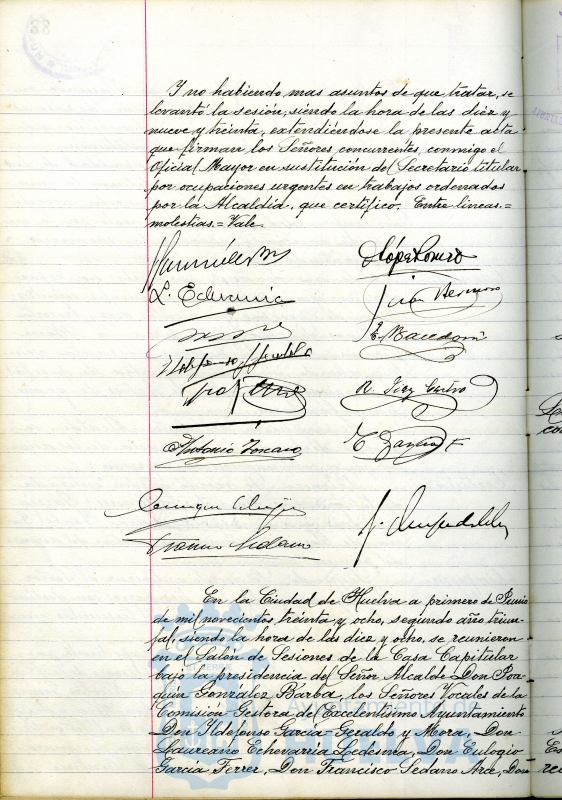 Y no habiendo mas asuntos de que tratar, se
levantó la sesión, siendo la hora de las diez y
nueve y treinta, extendiéndose la presente acta
que firman los Señores concurrentes, conmigo el
Oficial Mayor en sustitución del Secretario titular
por ocupaciones urgentes en trabajos ordenados
por la Alcaldía, que certifico. Entre lineas.=
molestias.= Vale.
L. Echevarria
E. Macedoni
Antonio Toscano
En la Ciudad de Huelva a primero de Junio
de mil novecientos treinta y ocho, segundo año triun-
fal, siendo la hora de las diez y ocho, se reunieron
en el Salón de Sesiones de la Casa Capitular
bajo la presidencia del Señor Alcalde Don Joa-
quín González Barba, los Señores Vocales de la
Comisión Gestora del Excelentísimo Ayuntamiento
Don Ildefonso García-Geraldo y Mora, Don
Laureano Echevarría Ledesma, Don Eulogio
García Ferrer, Don Francisco Sedano Arce, Don